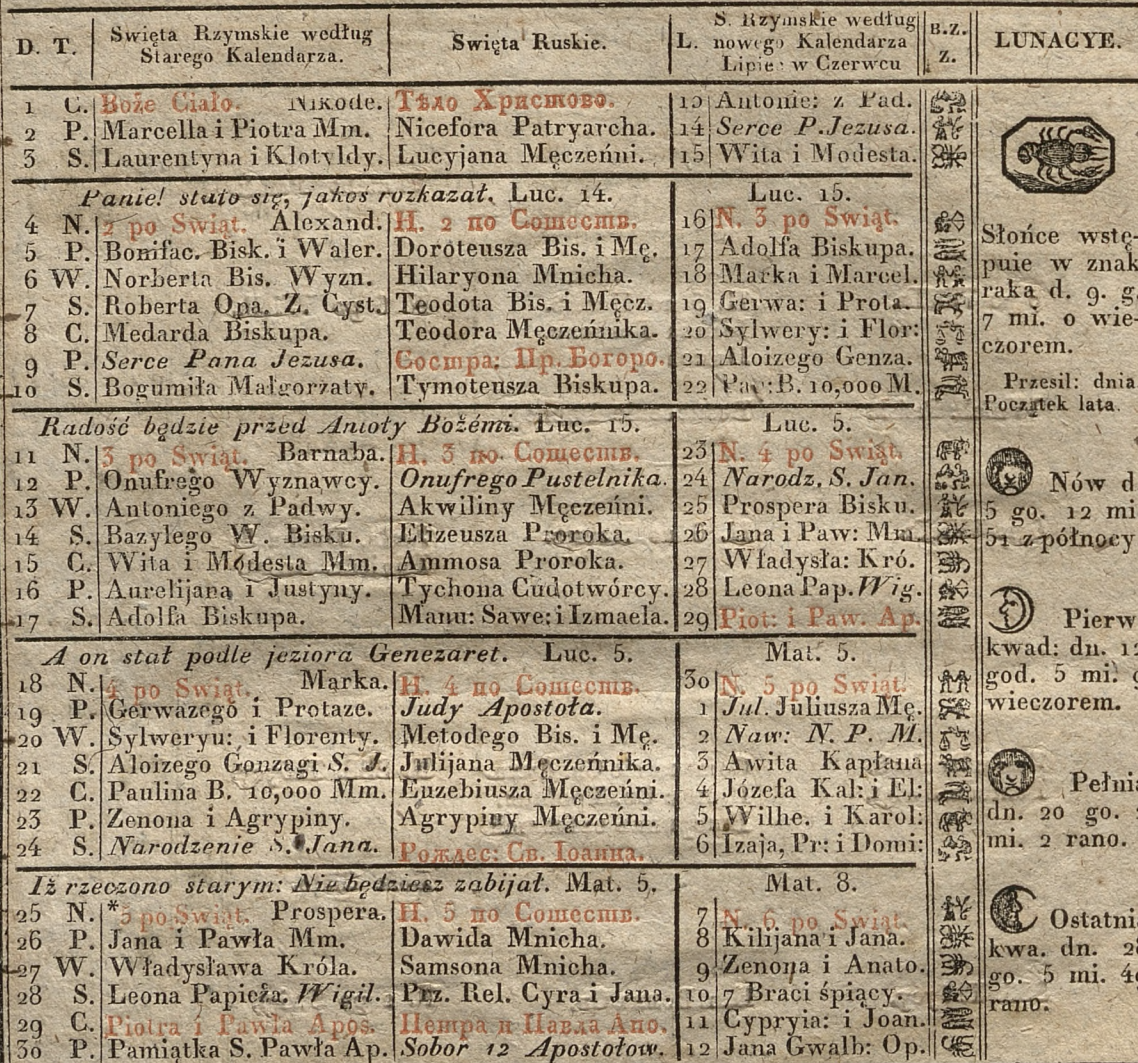 D. T. Swięta Rzymskie według Starego Kalendarza. Swięta Ruskie. L. S. Rzymskie według nowego Kalendarza Lipiec w Czerwcu B.Z. Z. LUNACYE.
1 C. Boże Ciało. Nikode. Тѣло Христово. 13 Antonie: z Pad.
2 P. Marcella i Piotra Mm. Nicefora Patryarcha. 14 Serce P. Jezusa.
3 S. Laurentyna i Klotyldy. Lucyjana Męczeńni. 15 Wita i Modesta.
Panie! stało się, jakoś rozkazał. Luc. 14. Luc. 15.
4 N. 2 po Swiąt. Alexand. Н. 2 по Сошеств. 16 N. 3 po Swiąt.
5 P. Bonifac. Bisk. i Waler. Doroteusza Bis. i Mę. 17 Adolfa Biskupa.
6 W. Norberta Bis. Wyzn. Hilaryona Mnicha. 18 Marka i Marcel.
7 S. Roberta Opa. Z. Cyst. Teodota Bis. i Męcz. 19 Gerwa: i Prota.
8 C. Medarda Biskupa. Teodora Męczeńnika. 20 Sylwery: i Flor:
9 P. Serce Pana Jezusa. Состра: Пр. Богоро. 21 Aloizego Genza.
10 S. Bogumiła Małgorzaty. Tymoteusza Biskupa. 22 Pau: B. 10,000 M.
Radość będzie przed Anioły Bożémi. Luc. 15. Luc. 5.
11 N. 3 po Swiąt. Barnaba. Н. 3 по Сошеств. 23 N. 4 po Swiąt.
12 P. Onufrego Wyznawcy. Onufrego Pustelnika. 24 Narodz. S. Jan.
13 W. Antoniego z Padwy. Akwiliny Męczeńni. 25 Prospera Bisku.
14 S. Bazylego W. Bisku. Elizeusza Proroka. 26 Jana i Paw: Mm.
15 C. Wita i Modesta Mm. Ammosa Proroka. 27 Władysła: Kró.
16 P. Aurelijana i Justyny. Tychona Cudotwórcy. 28 Leona Pap. Wig.
17 S. Adolfa Biskupa. Manu: Sawe: i Izmaela. 29 Piot: i Paw. Ap.
A on stał podle jeziora Genezaret. Luc. 5. Mat. 5.
18 N. 4 po Swiąt. Marka. Н. 4 по Сошеств. 30 N. 5 po Swiąt.
19 P. Gerwazego i Protaze. Judy Apostoła. 1 Jul. Juliusza Mę.
20 W. Sylweryu: i Florenty. Metodego Bis. i Mę. 2 Naw: N. P. M.
21 S. Aloizego Gonzagi S. J. Julijana Męczeńnika. 3 Awita Kapłana
22 C. Paulina B. 10,000 Mm. Euzebiusza Męczeńni. 4 Józefa Kal: i El:
23 P. Zenona i Agrypiny. Agrypiny Męczeńni. 5 Wilhe. i Karol:
24 S. Narodzenie S. Jana. Рождес: Св. Іоанна. 6 Izaja, Pr: i Domi:
Iż rzeczono starym: Nie będziesz zabijał. Mat. 5. Mat. 8.
25 N. *5 po Swiąt. Prospera. Н. 5 по Сошеств. 7 N. 6 po Swiąt.
26 P. Jana i Pawła Mm. Dawida Mnicha. 8 Kilijana i Jana.
27 W. Władysława Króla. Samsona Mnicha. 9 Zenona i Anato.
28 S. Leona Papieża. Wigil. Prz. Rel. Cyra i Jana. 10 7 Braci śpiący.
29 C. Piotra i Pawła Apos. Петра и Павла Апо. 11 Cypryia: i Joan.
30 P. Pamiątka S. Pawła Ap. Sobor 12 Apostołow. 12 Jana Gwalb: Op.
Słońce wstę-
puie w znak
raka d. 9. g.
7 mi. o wie-
czorem.
Przesil: dnia
Początek lata.
Nów d
5 go. 12 mi
51 z północy
Pierw
kwad: dn. 12
god. 5 mi. 9
wieczorem.
Pełnia
dn. 20 go.
mi. 2 rano.
Ostatni
kwa. dn. 28
go. 5 mi. 40
rano.